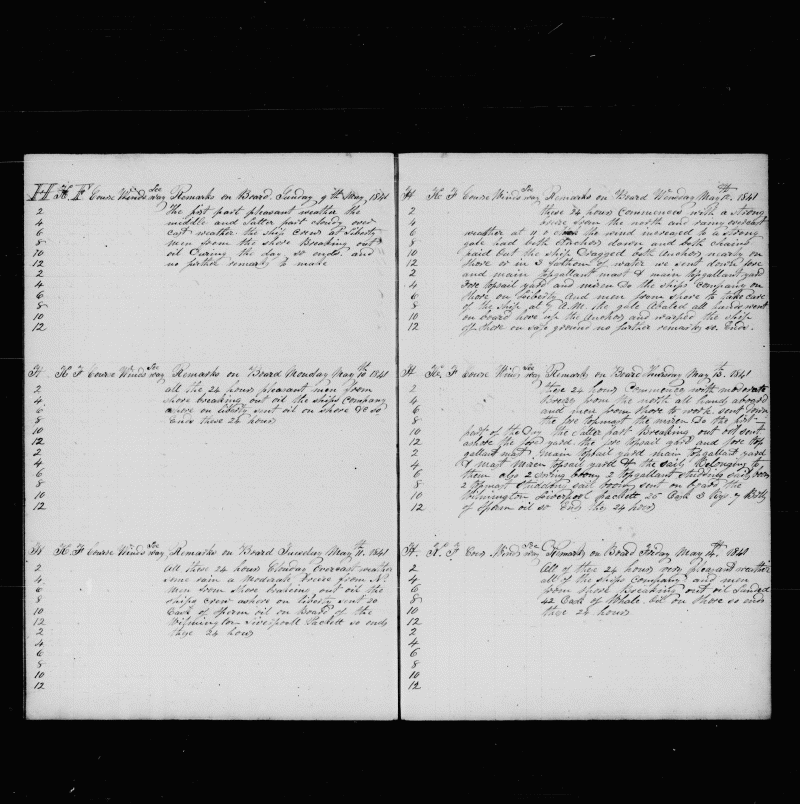 H K F Course Winds Lee way Remarks on Board Sunday 9th May 1841
2 the first part pleasant weather the
4 middle and Latter part cloudy over
6 cast weather the ship Crew at Liberty
8 men from the shore Breaking out
10 oil During the day so ends and
12 no further remarks to make
2
4
6
8
10
12
H K F Course Winds Lee way Remarks on Board Monday May 10th 1841
2 all the 24 hours pleasant men from
4 shore breaking out oil the ships company
6 were on liberty sent oil on shore &c so
8 Ends these 24 hours
10
12
2
4
6
8
10
12
H K F Course Winds Lee way Remarks on Board Tuesday May 11th 1841
2 all these 24 hours Clouday overcast weather
4 some rain a Moderate breeze from N.
6 men from Shore out oil the
8 ships crew ashore on liberty sent 20
10 Cask of sperm oil on Board of the
12 Wilmington Liverpool Packett so ends
2 these 24 hours
4
6
8
10
12
H K F Course Winds Lee way Remarks on Board Wensday May 12th 1841
2 these 24 hours commences with a strong
4 breeze from the north and rainy overcast
6 weather at 4 o clock the wind increased to a strong
8 gale had both Anchors down and both chains
10 paid out the ship Dragged both Anchors nearly on
12 shore or in 3 fathom of water we sent down fore
2 and main topgallant mast & main topgallant yard
4 fore topsail yard and mizen Do the ships company on
6 shore on liberty And men from shore to take care
8 of the ship at 7 A.M. the gale abated all hands went
10 on board hove up the Anchors and warped the ship
12 off shore on safe ground no further remarks so Ends.
H K F Course Winds Lee way Remarks on Board Thursday May 13th 1841
2 these 24 hours Commence with moderate
4 Breeze from the north all hands aboard
6 and men from shore to work sent down
8 the fore topmast the mizen Do the first
10 part of the Day the Latter part Breaking out oil sent
12 ashore the fore yard the fore topsail yard and fore top
2 gallant mast main topsail yard main topgallant yard
4 & mast mizen topsail yard & the sails Belonging to
6 them also 2 swing booms 2 topgallant studding sail booms
8 2 topmast studding sail booms sent on board the
10 Wilmington Liverpool packett 25 Cask 3 7
12 of sperm oil so Ends the 24 hours
H K F Cour Winds Lee way Remarks on Board Friday May 14th 1841
2 all of these 24 hours very pleasant weather
4 all of the ships company and men
6 from shore Breaking out oil Landed
8 42 Cask of Whale oil on shore so ends
10 these 24 hours
12
2
4
6
8
10
12